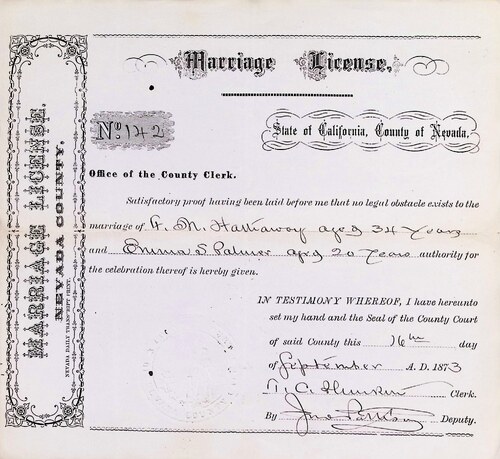 Marriage License,
MARRIAGE LICENSE.
NEVADA COUNTY.
NEVADA DAILY TRANSCRIPT PRINT.
No 142
State of California, County of Nevada.
Office of the County Clerk.
Satisfactory proof having been laid before me that no legal obstacle exists to the
marriage of A. N. Hathaway aged 34 Years
and Emma S Palmer aged 20 Years authority for
the celebration thereof is hereby given.
IN TESTIMONY WHEREOF, I have hereunto
set my hand and the Seal of the County Court
of said County this 16th day
of September A. D. 1873
T. C. Clerk.
By Deputy.